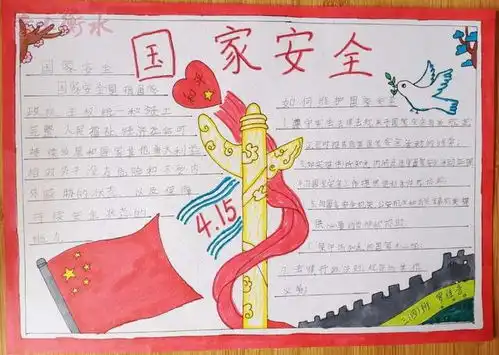 衡水
国家安全
和平
国家安全
国家安全是指国家
政权、主权、统一和领土
完整、人民福祉、经济社会可
持续发展和国家其他重大利益
相对处于没有危险和不受内
外威胁的状态,以及保障
持续安全状态的
能力。
4.15
如何维护国家安全
1.遵守宪法、法律法规关于国家安全的有关规定
2.及时报告危害国家安全活动的线索;
3.如实提供所知悉的涉及危害国家安全活动的证据
4.为国家安全工作提供便利条件或其他协助
5.向国家安全机关、公安机关和有关军事机关提
供必要的支持和协助
6.保守所知悉的国家秘密;
7.法律、行政法规规定的其他
义务